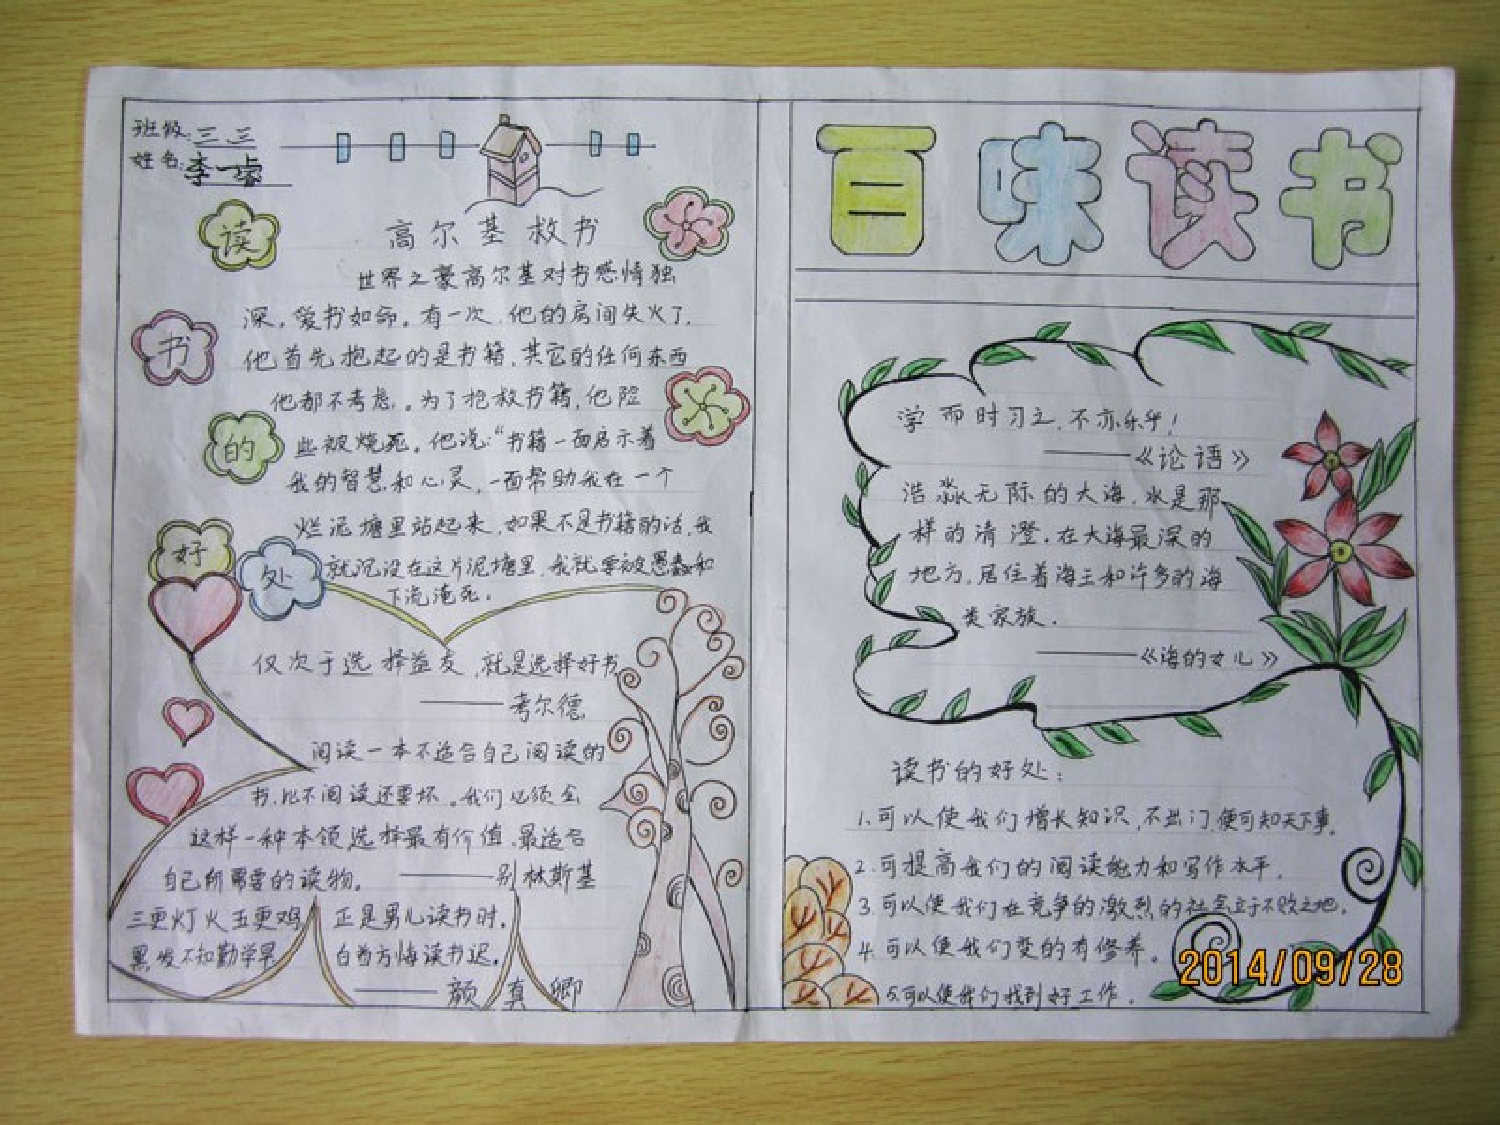 班级:三三
姓名:李一睿
读
书
的
好
处
高尔基救书
世界之豪高尔基对书感情独
深,爱书如命。有一次,他的房间失火了,
他首先抱起的是书籍,其它的任何东西
他都不考虑。为了抢救书籍,他险
些被烧死。他说:“书籍一面启示着
我的智慧和心灵,一面帮助我在一个
烂泥塘里站起来,如果不是书籍的话,我
就沉没在这片泥塘里,我就要被愚蠢和
下流淹死。
仅次于选择益友,就是选择好书
——考尔德
阅读一本不适合自己阅读的
书,比不阅读还要坏。我们必须会
这样一种本领,选择最有价值、最适合
自己所需要的读物。 ——别林斯基
三更灯火五更鸡,正是男儿读书时,
黑发不知勤学早,白首方悔读书迟。
——颜真卿
百味读书
学而时习之,不亦乐乎!
——《论语》
浩淼无际的大海,水是那
样的清澄。在大海最深的
地方,居住着海王和许多的海
类家族.
——《海的女儿》
读书的好处:
1.可以使我们增长知识,不出门,便可知天下事。
2.可提高我们的阅读能力和写作水平。
3.可以使我们在竞争的激烈的社会立于不败之地。
4.可以使我们变的有修养。
5.可以使我们找到好工作.
2014/09/28